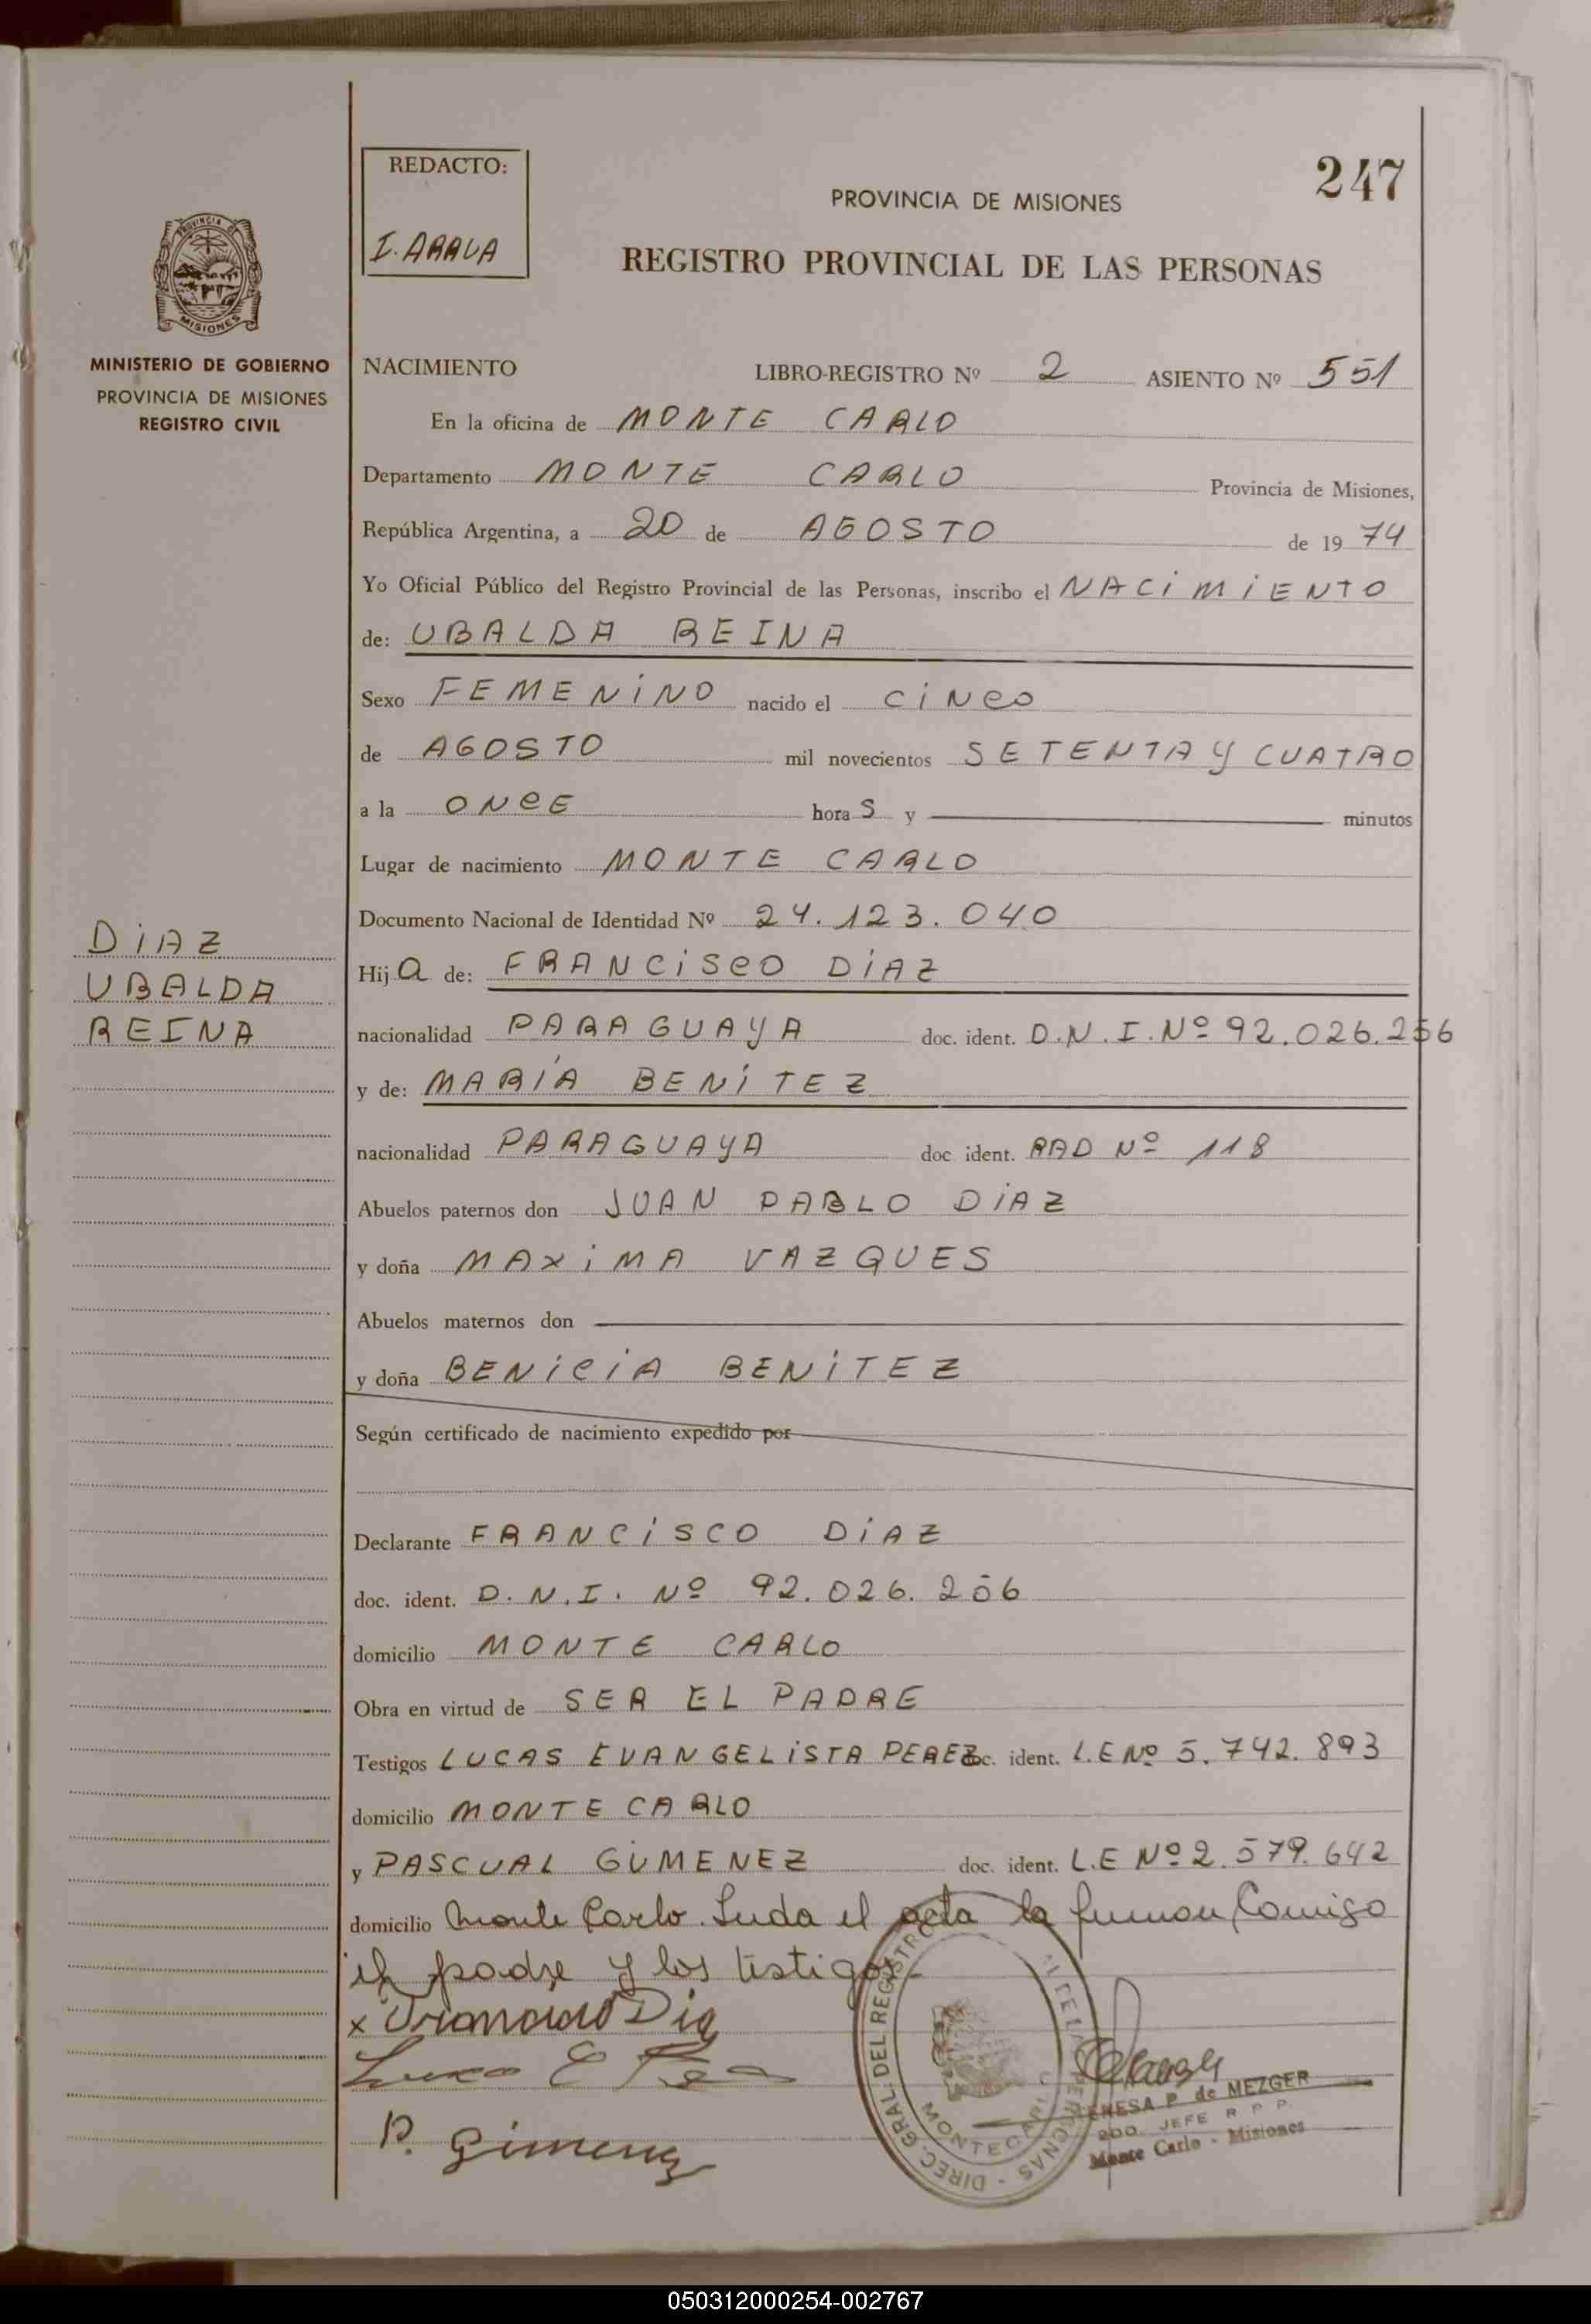 247
REDACTO:
I. ARAUA
PROVINCIA DE MISIONES
REGISTRO PROVINCIAL DE LAS PERSONAS
PROVINCIA DE
MISIONES
MINISTERIO DE GOBIERNO
PROVINCIA DE MISIONES
REGISTRO CIVIL
NACIMIENTO LIBRO-REGISTRO Nº 2 ASIENTO Nº 551
En la oficina de MONTE CARLO
Departamento MONTE CARLO Provincia de Misiones,
República Argentina, a 20 de AGOSTO de 19 74
Yo Oficial Público del Registro Provincial de las Personas, inscribo el NACIMIENTO
de: UBALDA REINA
Sexo FEMENINO nacido el CINCO
de AGOSTO mil novecientos SETENTA Y CUATRO
a la ONCE hora S y minutos
Lugar de nacimiento MONTE CARLO
Documento Nacional de Identidad Nº 24.123.040
DIAZ
UBALDA
REINA
Hij a de: FRANCISCO DIAZ
nacionalidad PARAGUAYA doc. ident. D.N.I. Nº 92.026.256
y de: MARÍA BENITEZ
nacionalidad PARAGUAYA doc ident. RAD Nº 118
Abuelos paternos don JUAN PABLO DIAZ
y doña MAXIMA VAZQUES
Abuelos maternos don
y doña BENICIA BENITEZ
Según certificado de nacimiento expedido por
Declarante FRANCISCO DIAZ
doc. ident. D.N.I. Nº 92.026.256
domicilio MONTE CARLO
Obra en virtud de SER EL PADRE
Testigos LUCAS EVANGELISTA PEREZ doc. ident. L.E Nº 5.742.893
domicilio MONTE CARLO
y PASCUAL GIMENEZ doc. ident. L.E Nº 2.579.642
domicilio Monte Carlo. Leida el acta la firman Comigo
el padre y los testigos.-
x Francisco Dia
Lucas E Perez
P. Gimenez
DIREC. GRAL. DEL REGISTRO DE LAS PERSONAS
MONTECARLO
TERESA P. de MEZGER
2DO. JEFE R P P
Monte Carlo - Misiones
050312000254-002767